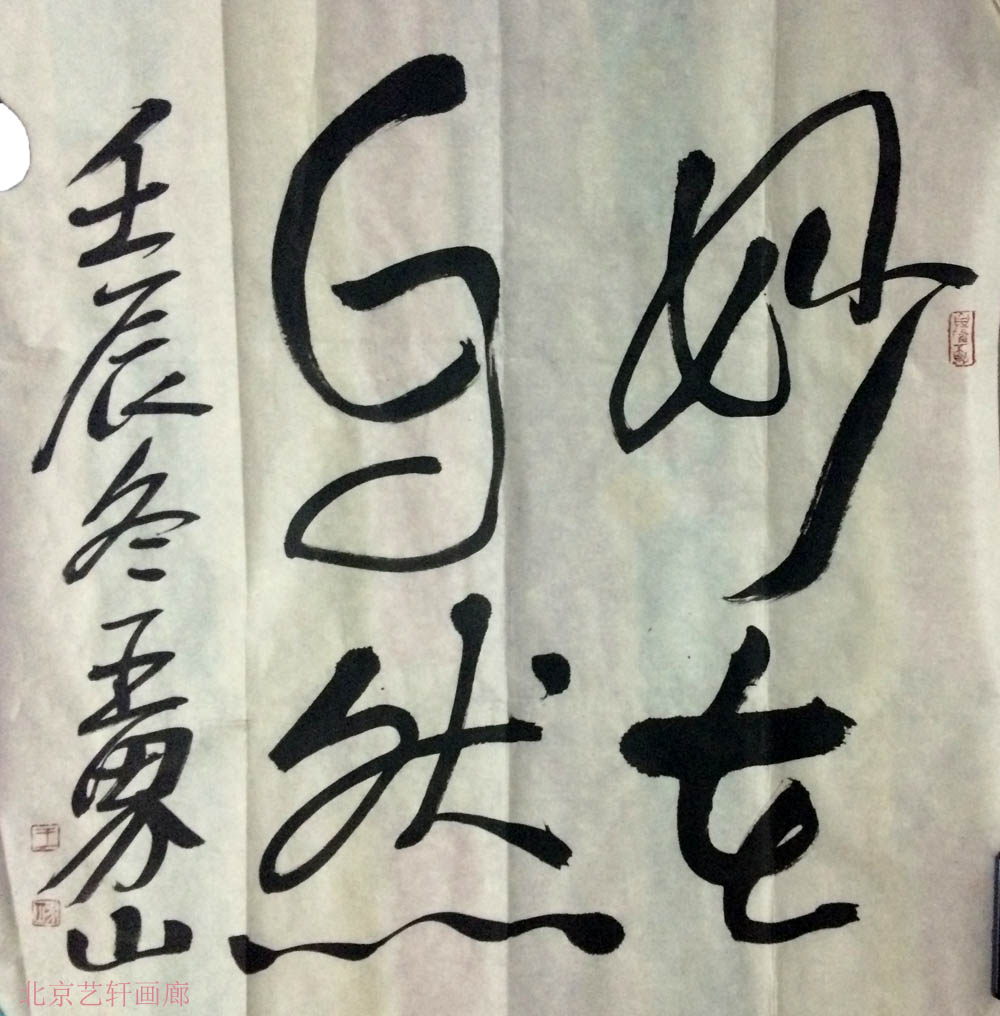 妙在
自然
壬辰冬王界山
北京艺轩画廊